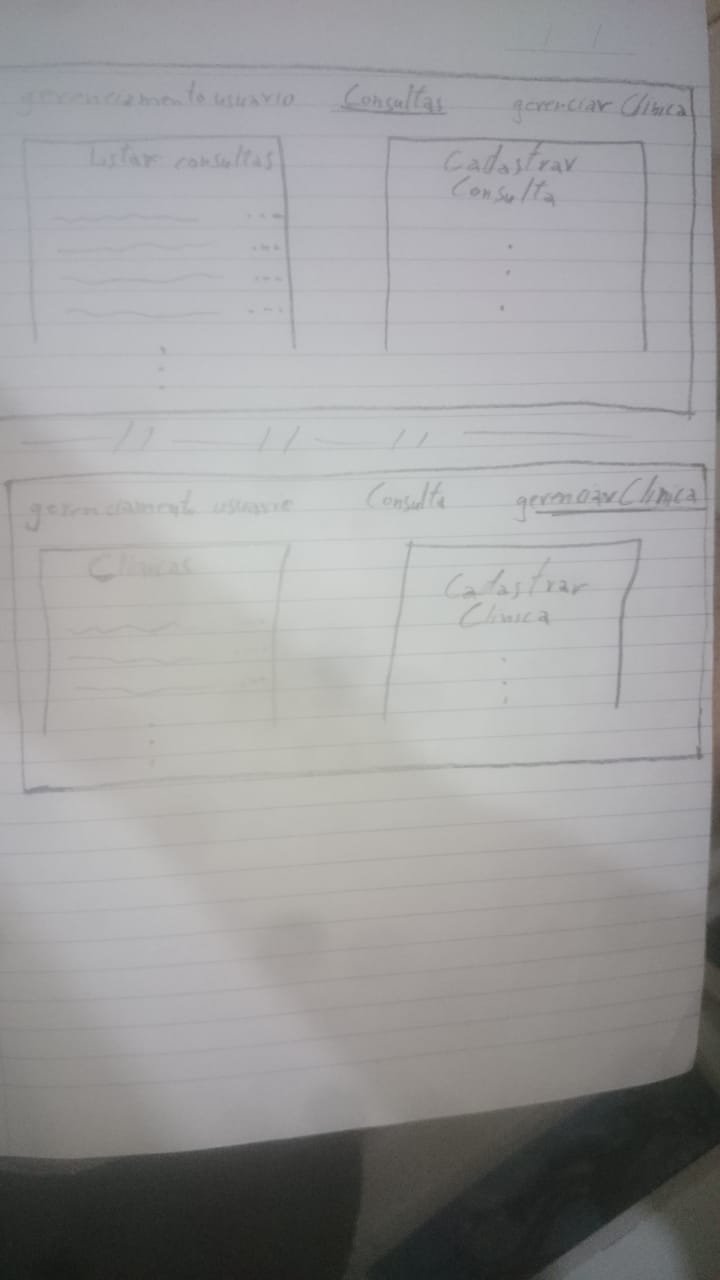 gerenciamento usuario Consultas gerenciar Clinica
Listar consultas
Cadastrar
Consulta
gerenciamento usuario Consulta gerenciar Clinica
Clinicas
Cadastrar
Clinica